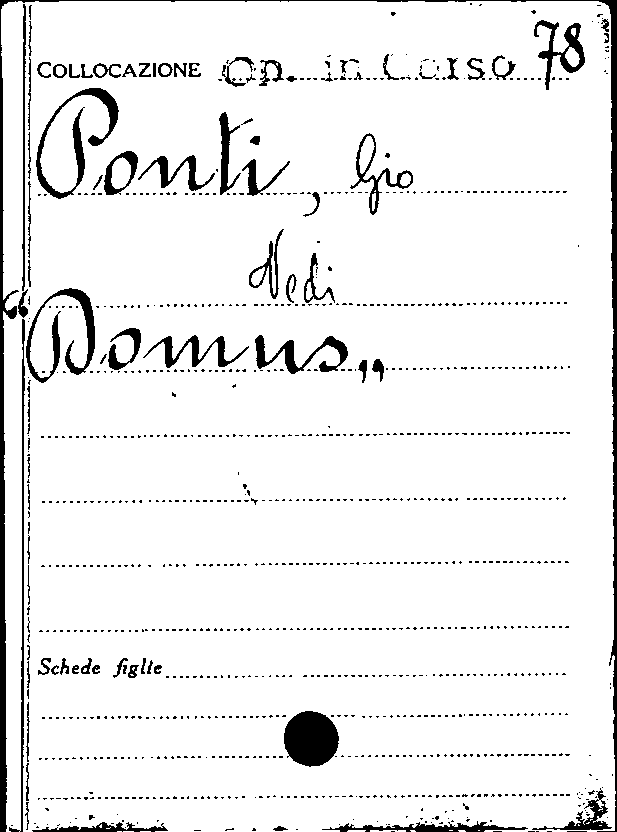 COLLOCAZIONE Op. in Corso 78
Ponti, Gio
Vedi
"Domus„
Schede figlie